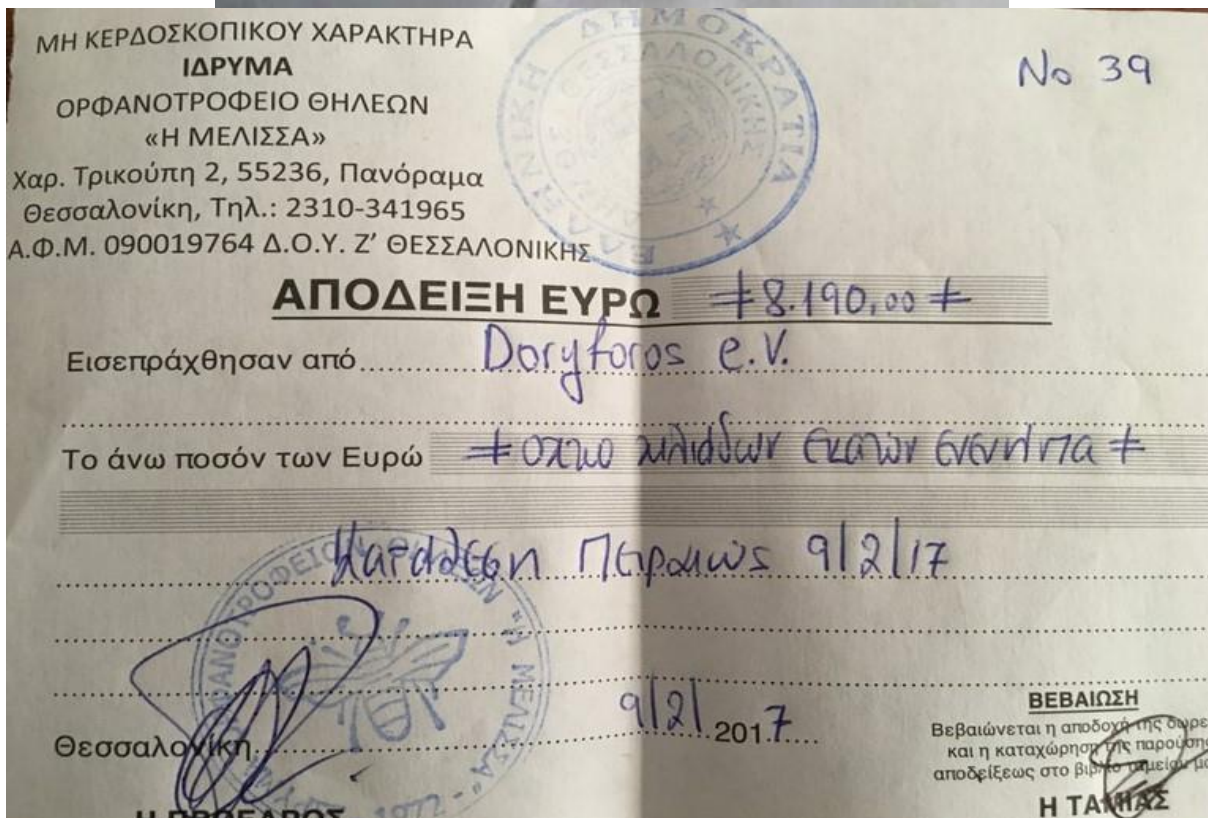 ΜΗ ΚΕΡΔΟΣΚΟΠΙΚΟΥ ΧΑΡΑΚΤΗΡΑ
ΙΔΡΥΜΑ
ΟΡΦΑΝΟΤΡΟΦΕΙΟ ΘΗΛΕΩΝ
«Η ΜΕΛΙΣΣΑ»
Χαρ. Τρικούπη 2, 55236, Πανόραμα
Θεσσαλονίκη, Τηλ.: 2310-341965
Α.Φ.Μ. 090019764 Δ.Ο.Υ. Ζ' ΘΕΣΣΑΛΟΝΙΚΗΣ
ΕΛΛΗΝΙΚΗ ΔΗΜΟΚΡΑΤΙΑ
ΘΕΣΣΑΛΟΝΙΚΗΣ
No 39
ΑΠΟΔΕΙΞΗ ΕΥΡΩ ≠8.190,00≠
Εισεπράχθησαν από Doryforos e.V.
Το άνω ποσόν των Ευρώ ≠ οκτώ χιλιάδων εκατόν ενενήντα ≠
Κατάθεση Πειραιώς 9/2/17
ΟΡΦΑΝΟΤΡΟΦΕΙΟΝ ΘΗΛΕΩΝ "Η ΜΕΛΙΣΣΑ"
Θεσσαλονίκη 9/2/2017
ΒΕΒΑΙΩΣΗ
Βεβαιώνεται η αποδοχή της δωρε
και η καταχώρηση της παρούσης
αποδείξεως στο βιβλίο ταμείου μα
Η ΠΡΟΕΔΡΟΣ
Η ΤΑΜΙΑΣ